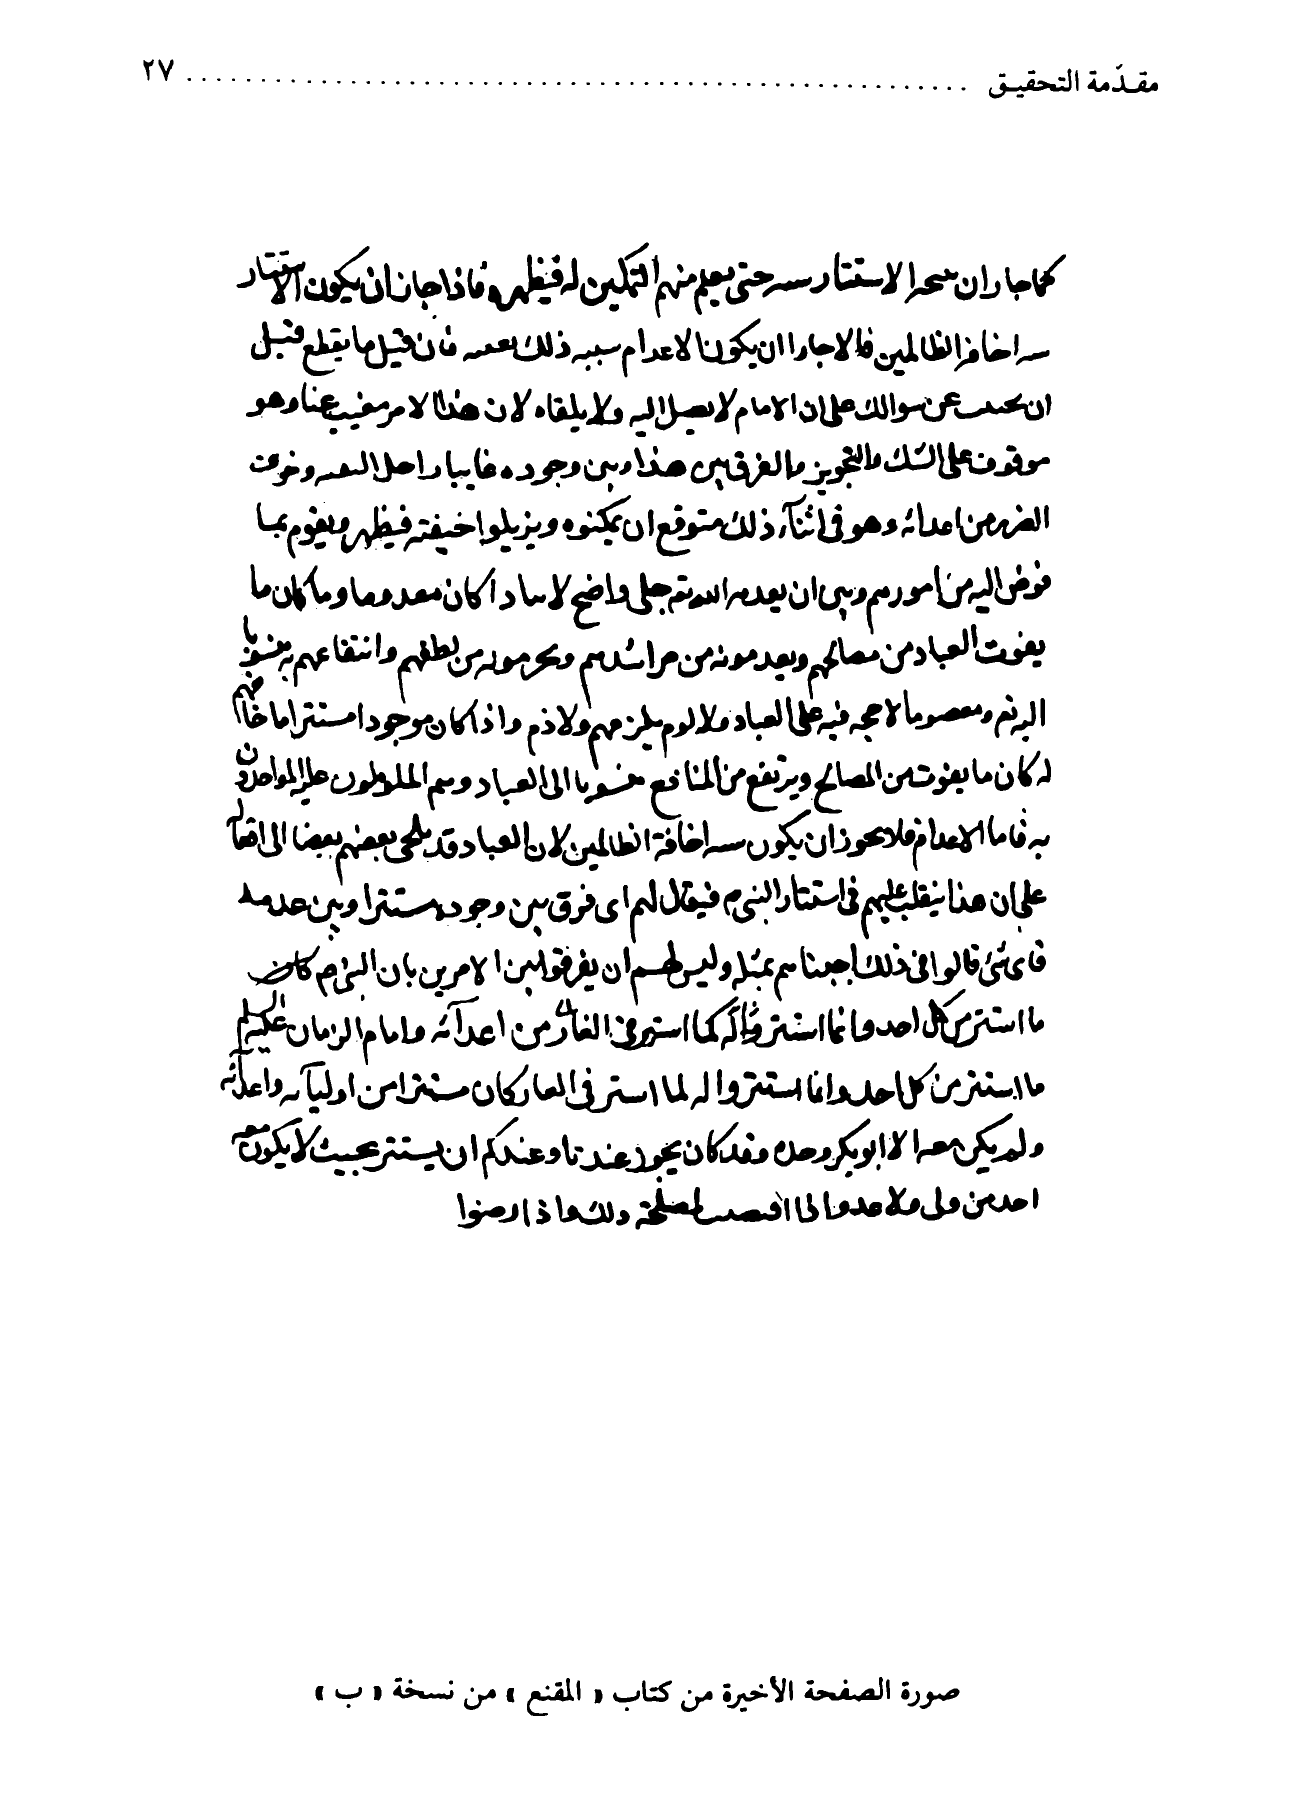 مقدّمة التحقيق ........................................ ٢٧
كما جاز ان الاستتار حتى يعلم منهم التمكين له فيظهر فاذا جاز ان يكون الاستتار
اخافة الظالمين فالا جاز ان يكون الاعدام سببه ذلك بعينه فان قيل ما يقطع قبل
ان عن سوالك على ان الامام لا يصل اليه ولا يلقاه لان هذا الامر مغيب عنا وهو
موقوف على الشك والتجويز ما الفرق بين هذا وبين وجوده غايبا وخوف
الضرر من اعدائه وهو فى اثناء ذلك متوقع ان يمكنوه ويزيلوا خيفته فيظهر ويقوم بما
فوض اليه من امورهم وبين ان يعدمه الله تع جلى واضح كان معدوما وما كان ما
يفوت العباد من مصالحهم ويعدمونه من مراشدهم ويحرمونه من لطفهم وانتفاعهم به منسوبا
اليه تع ومعصوما لا حجه فيه على العباد ولا لوم يلزمهم ولا ذم واذا كان موجودا مستترا
له كان ما يفوت من المصالح ويرتفع من المنافع منسوبا الى العباد وهم الملومون عليه المواخذون
به فاما الاعدام فلا يجوز ان يكون اخافة الظالمين لان العباد قد يلجى بعضهم بعضا الى افعاله
على ان هذا ينقلب عليهم فى استتار النبى م فيقال لهم اى فرق بين وجوده مستترا وبين عدمه
فاى شئ قالوا فى ذلك اجبناهم بمثله وليس لهم ان يفرقوا بين الامرين بان النبى م كان
ما استتر من كل احد وانما استتر كما استتر فى الغار من اعدآئه وامام الزمان عليه السلم
ما استتر من كل احد وانما استتروا له لما استتر فى الغار كان مستترا من اوليآئه واعدآئه
ولم يكن معه الا ابو بكر وحده وقد كان يجوز عندنا وعندكم ان يستتر بحيث لا يكون معه
احد من ولى ولا عدو اذا لمصلحة ذلك واذا رضوا
صورة الصفحة الأخيرة من كتاب « المقنع » من نسخة « ب »